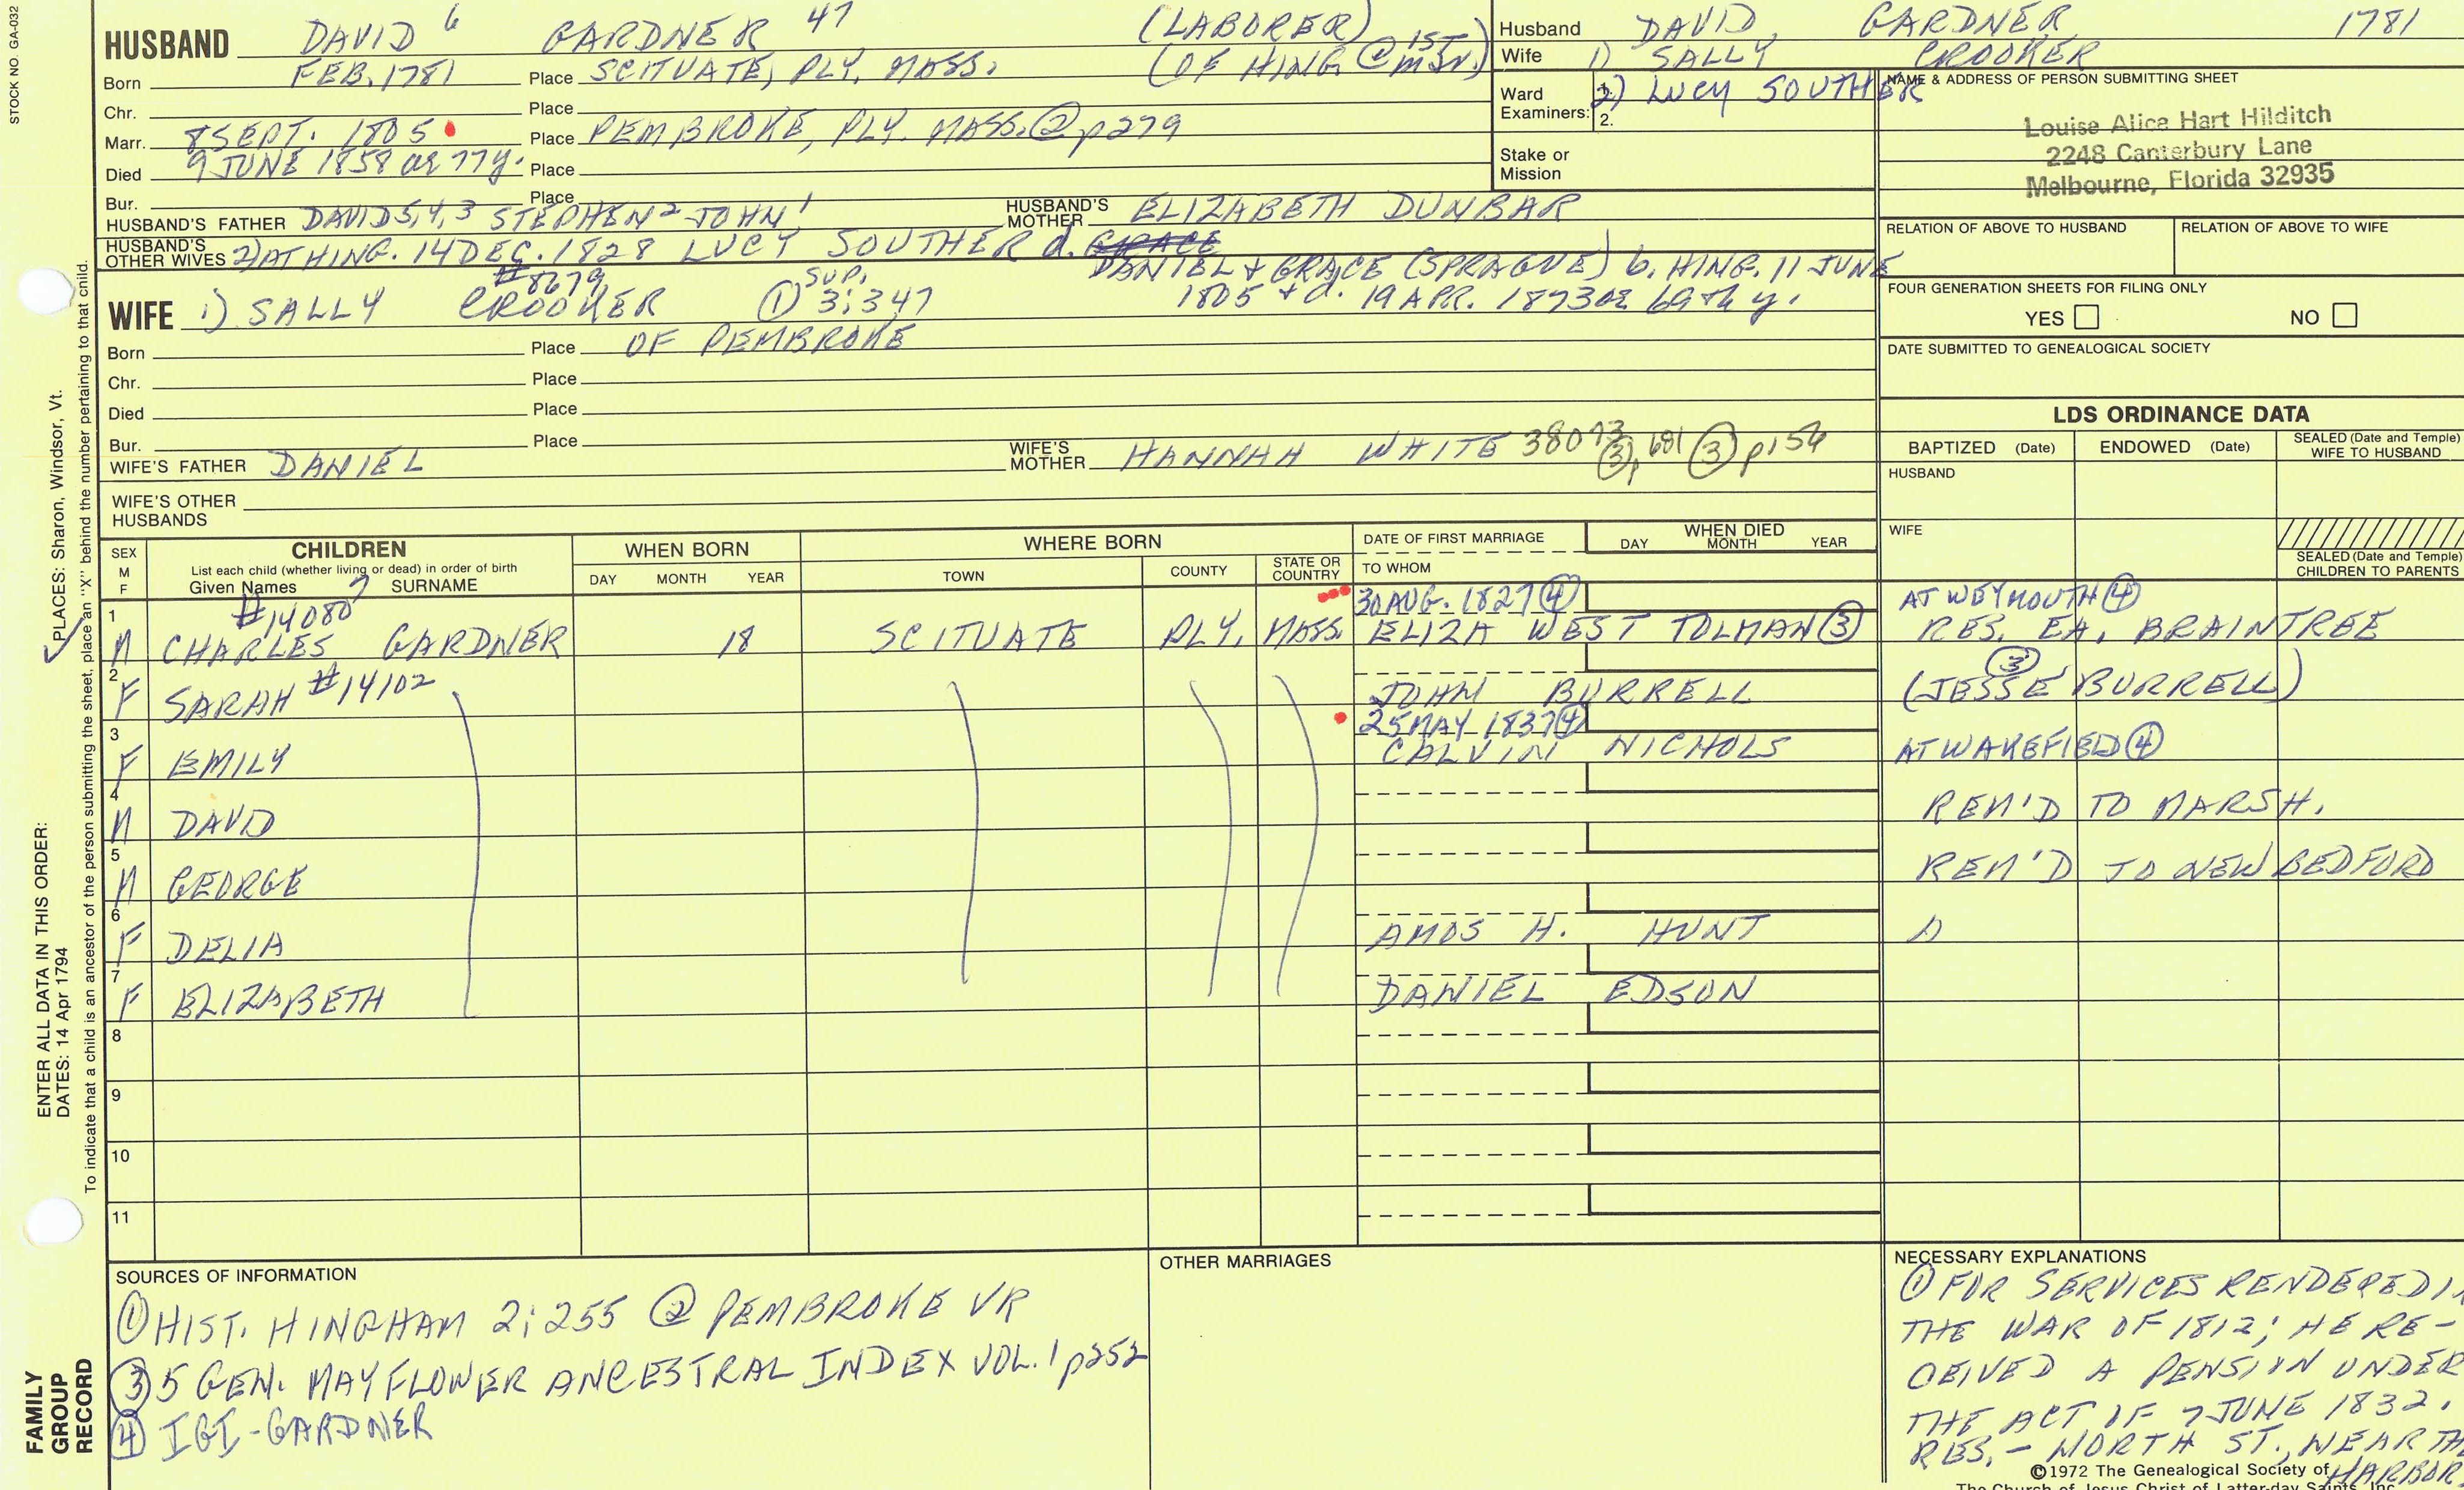 STOCK NO. GA-032
HUSBAND DAVID 6 GARDNER 47 (LABORER)
Born FEB. 1781 Place SCITUATE, PLY. MASS. (OF HING @ 1ST MJN.)
Chr. Place
Marr. 8 SEPT. 1805 Place PEMBROKE, PLY. MASS. ② p279
Died 9 JUNE 1858 ae 77y. Place
Bur. Place
HUSBAND'S FATHER DAVID 5,4,3 STEPHEN 2 JOHN 1 HUSBAND'S MOTHER ELIZABETH DUNBAR
HUSBAND'S OTHER WIVES 2) AT HING. 14 DEC. 1828 LUCY SOUTHER d. GRACE
DANIEL & GRACE (SPRAGUE) b. HING. 11 JUNE
1805 & d. 19 APR. 1873 ae 69th y.
#8679
WIFE 1) SALLY CROOKER ① SUP. 3:347
Born Place OF PEMBROKE
Chr. Place
Died Place
Bur. Place
WIFE'S FATHER DANIEL WIFE'S MOTHER HANNAH WHITE 38073 ③, 681 ③ p154
WIFE'S OTHER HUSBANDS
Husband DAVID GARDNER 1781
Wife 1) SALLY CROOKER
Ward Examiners: 1. 2. 2) LUCY SOUTHER
Stake or Mission
NAME & ADDRESS OF PERSON SUBMITTING SHEET
Louise Alice Hart Hilditch
2248 Canterbury Lane
Melbourne, Florida 32935
RELATION OF ABOVE TO HUSBAND RELATION OF ABOVE TO WIFE
FOUR GENERATION SHEETS FOR FILING ONLY
YES NO
DATE SUBMITTED TO GENEALOGICAL SOCIETY
LDS ORDINANCE DATA
BAPTIZED (Date) ENDOWED (Date) SEALED (Date and Temple) WIFE TO HUSBAND
HUSBAND
WIFE
SEALED (Date and Temple) CHILDREN TO PARENTS
SEX M F CHILDREN WHEN BORN WHERE BORN DATE OF FIRST MARRIAGE WHEN DIED
List each child (whether living or dead) in order of birth
Given Names SURNAME DAY MONTH YEAR TOWN COUNTY STATE OR COUNTRY TO WHOM DAY MONTH YEAR
#14080 30 AUG. 1827 ④ AT WEYMOUTH ④
1 M CHARLES GARDNER 18 SCITUATE PLY. MASS. ELIZA WEST TOLMAN ③ RES. EA. BRAINTREE
2 F SARAH #14102 JOHN BURRELL (JESSE ③ BURRELL)
25 MAY 1837 ④
3 F EMILY CALVIN NICHOLS AT WAKEFIELD ④
4 M DAVID REM'D TO MARSH.
5 M GEORGE REM'D TO NEW BEDFORD
6 F DELIA AMOS H. HUNT
7 F ELIZABETH DANIEL EDSON
8
9
10
11
SOURCES OF INFORMATION
① HIST. HINGHAM 2:255 ② PEMBROKE VR
③ 5 GEN. MAYFLOWER ANCESTRAL INDEX VOL. 1 p252
④ IGI - GARDNER
OTHER MARRIAGES
NECESSARY EXPLANATIONS
① FOR SERVICES RENDERED I
THE WAR OF 1812; HE RE-
CEIVED A PENSION UNDER
THE ACT OF 7 JUNE 1832.
RES. - NORTH ST., NEAR TH
HARBOR
©1972 The Genealogical Society of
The Church of Jesus Christ of Latter-day Saints, Inc.
PLACES: Sharon, Windsor, Vt.
ENTER ALL DATA IN THIS ORDER:
DATES: 14 Apr 1794
To indicate that a child is an ancestor of the person submitting the sheet, place an "X" behind the number pertaining to that child.
FAMILY
GROUP
RECORD